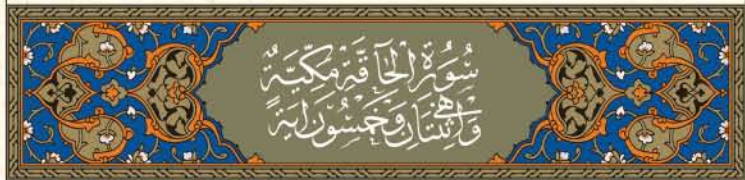 سُورَةُ الْحَاقَّةِ مَكِّيَّةٌ
وَهِيَ اثْنَتَانِ وَخَمْسُونَ اٰيَةً